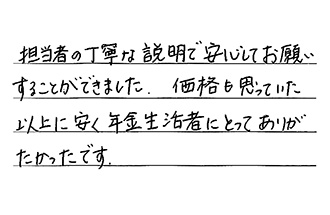 担当者の丁寧な説明で安心してお願い
することができました. 価格も思っていた
以上に安く年金生活者にとってありが
たかったです.